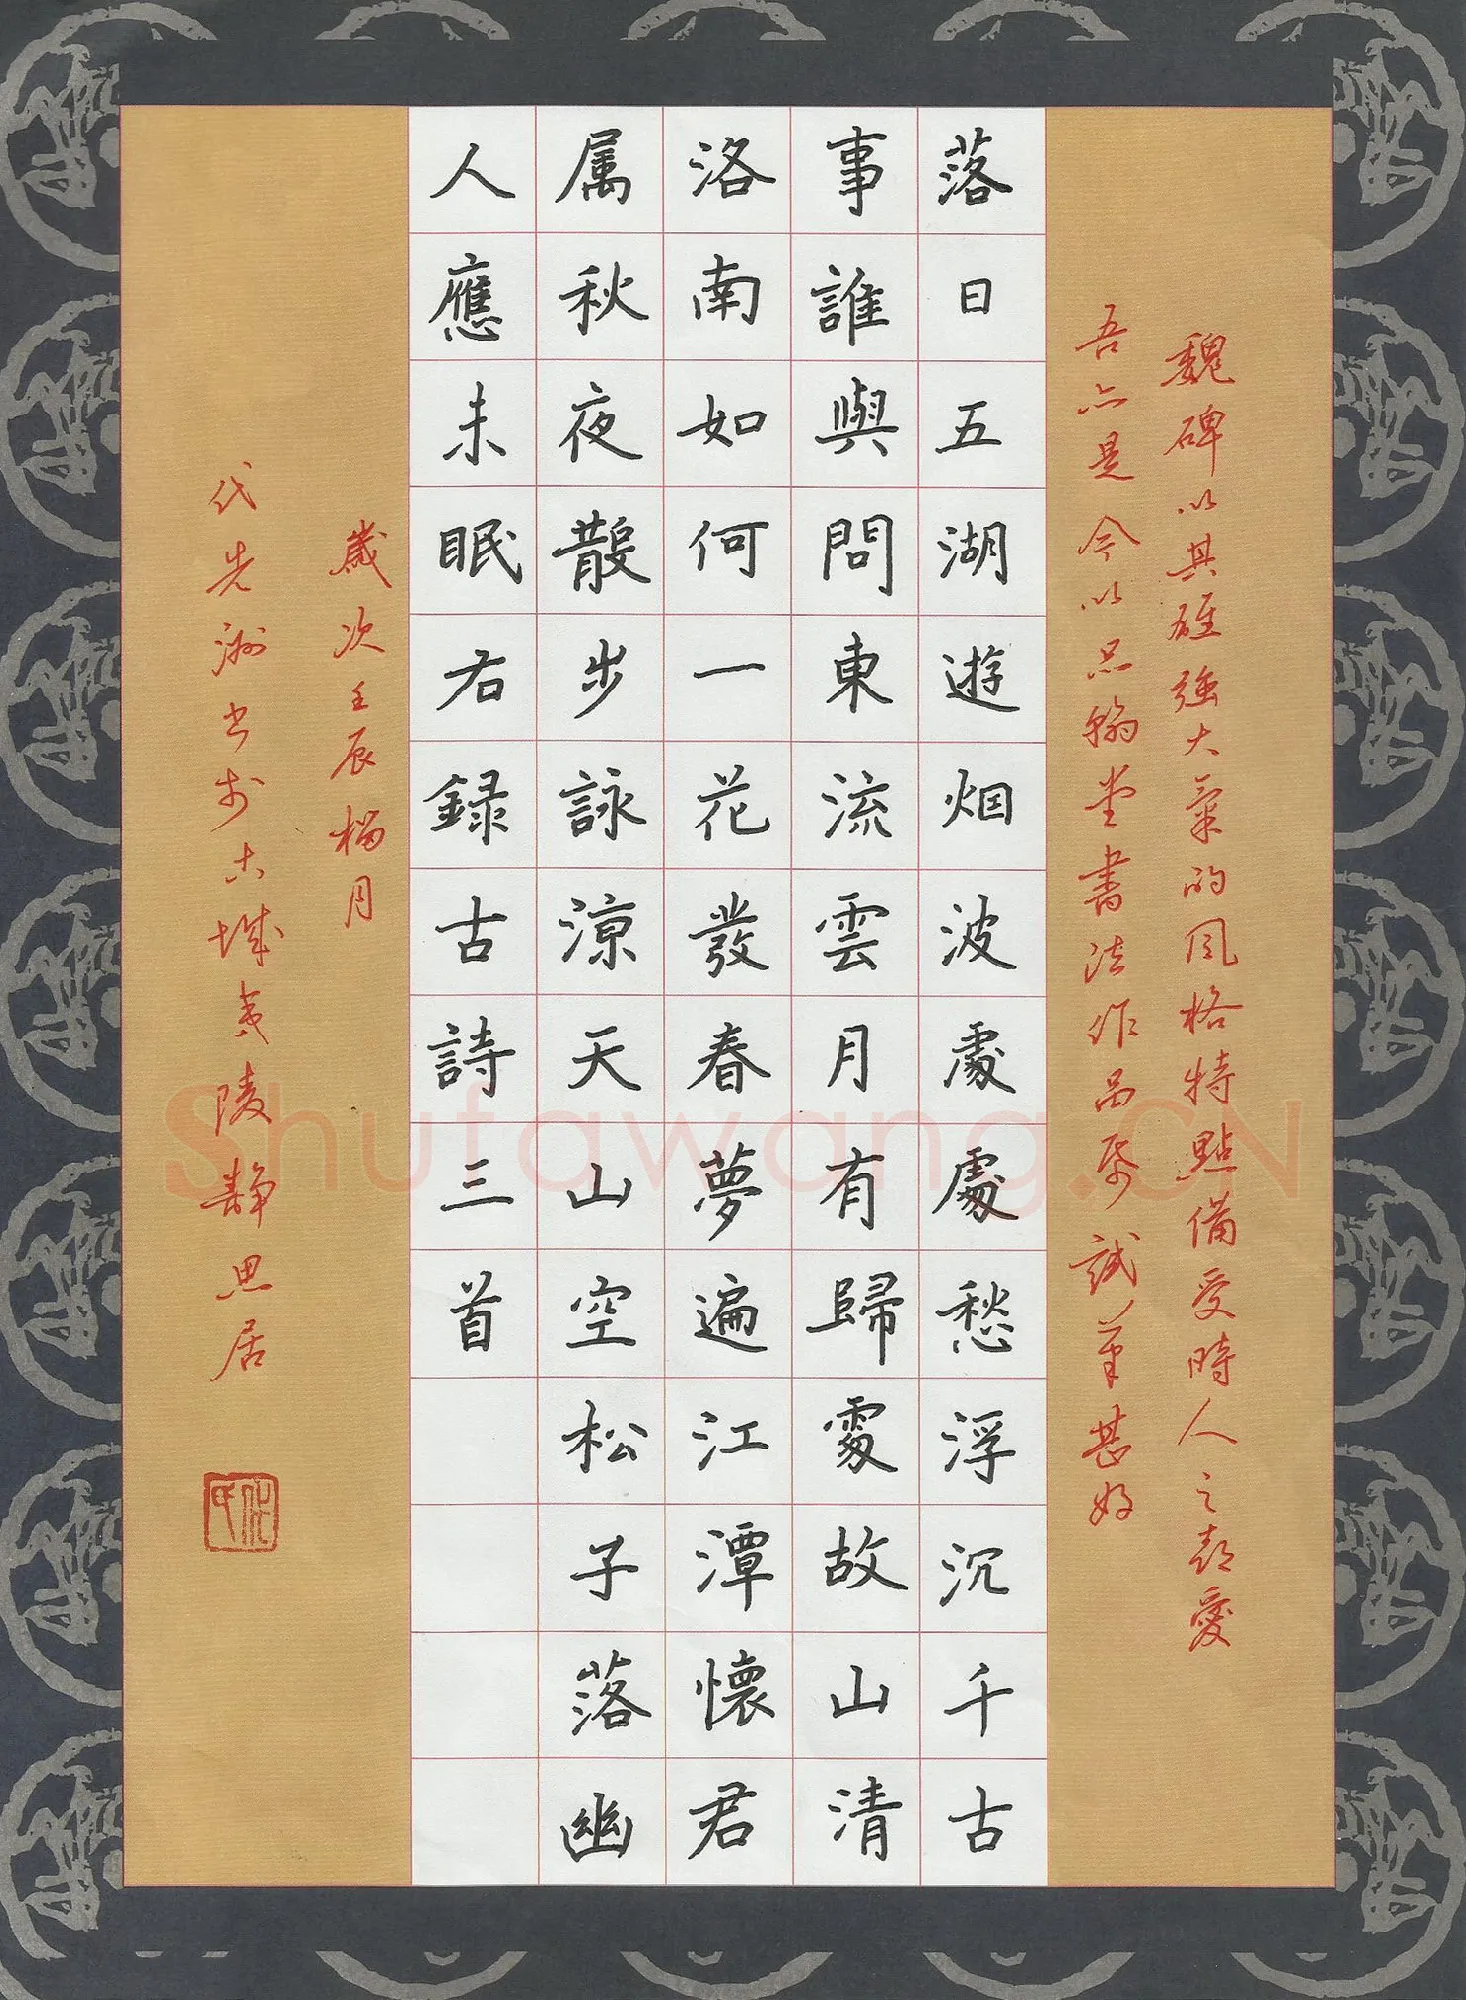 魏碑以其雄強大氣的风格特點備受時人之愛
吾亦是今以品翰堂書法作品紙試筆甚好
落日五湖遊烟波處處愁浮沉千古
事誰與問東流雲月有歸處故山清
洛南如何一花發春夢遍江潭懷君
属秋夜散步詠涼天山空松子落幽
人應未眠右録古詩三首
歲次壬辰榴月
代先洲书於古城夷陵静思居
代氏
Shufawang.CN